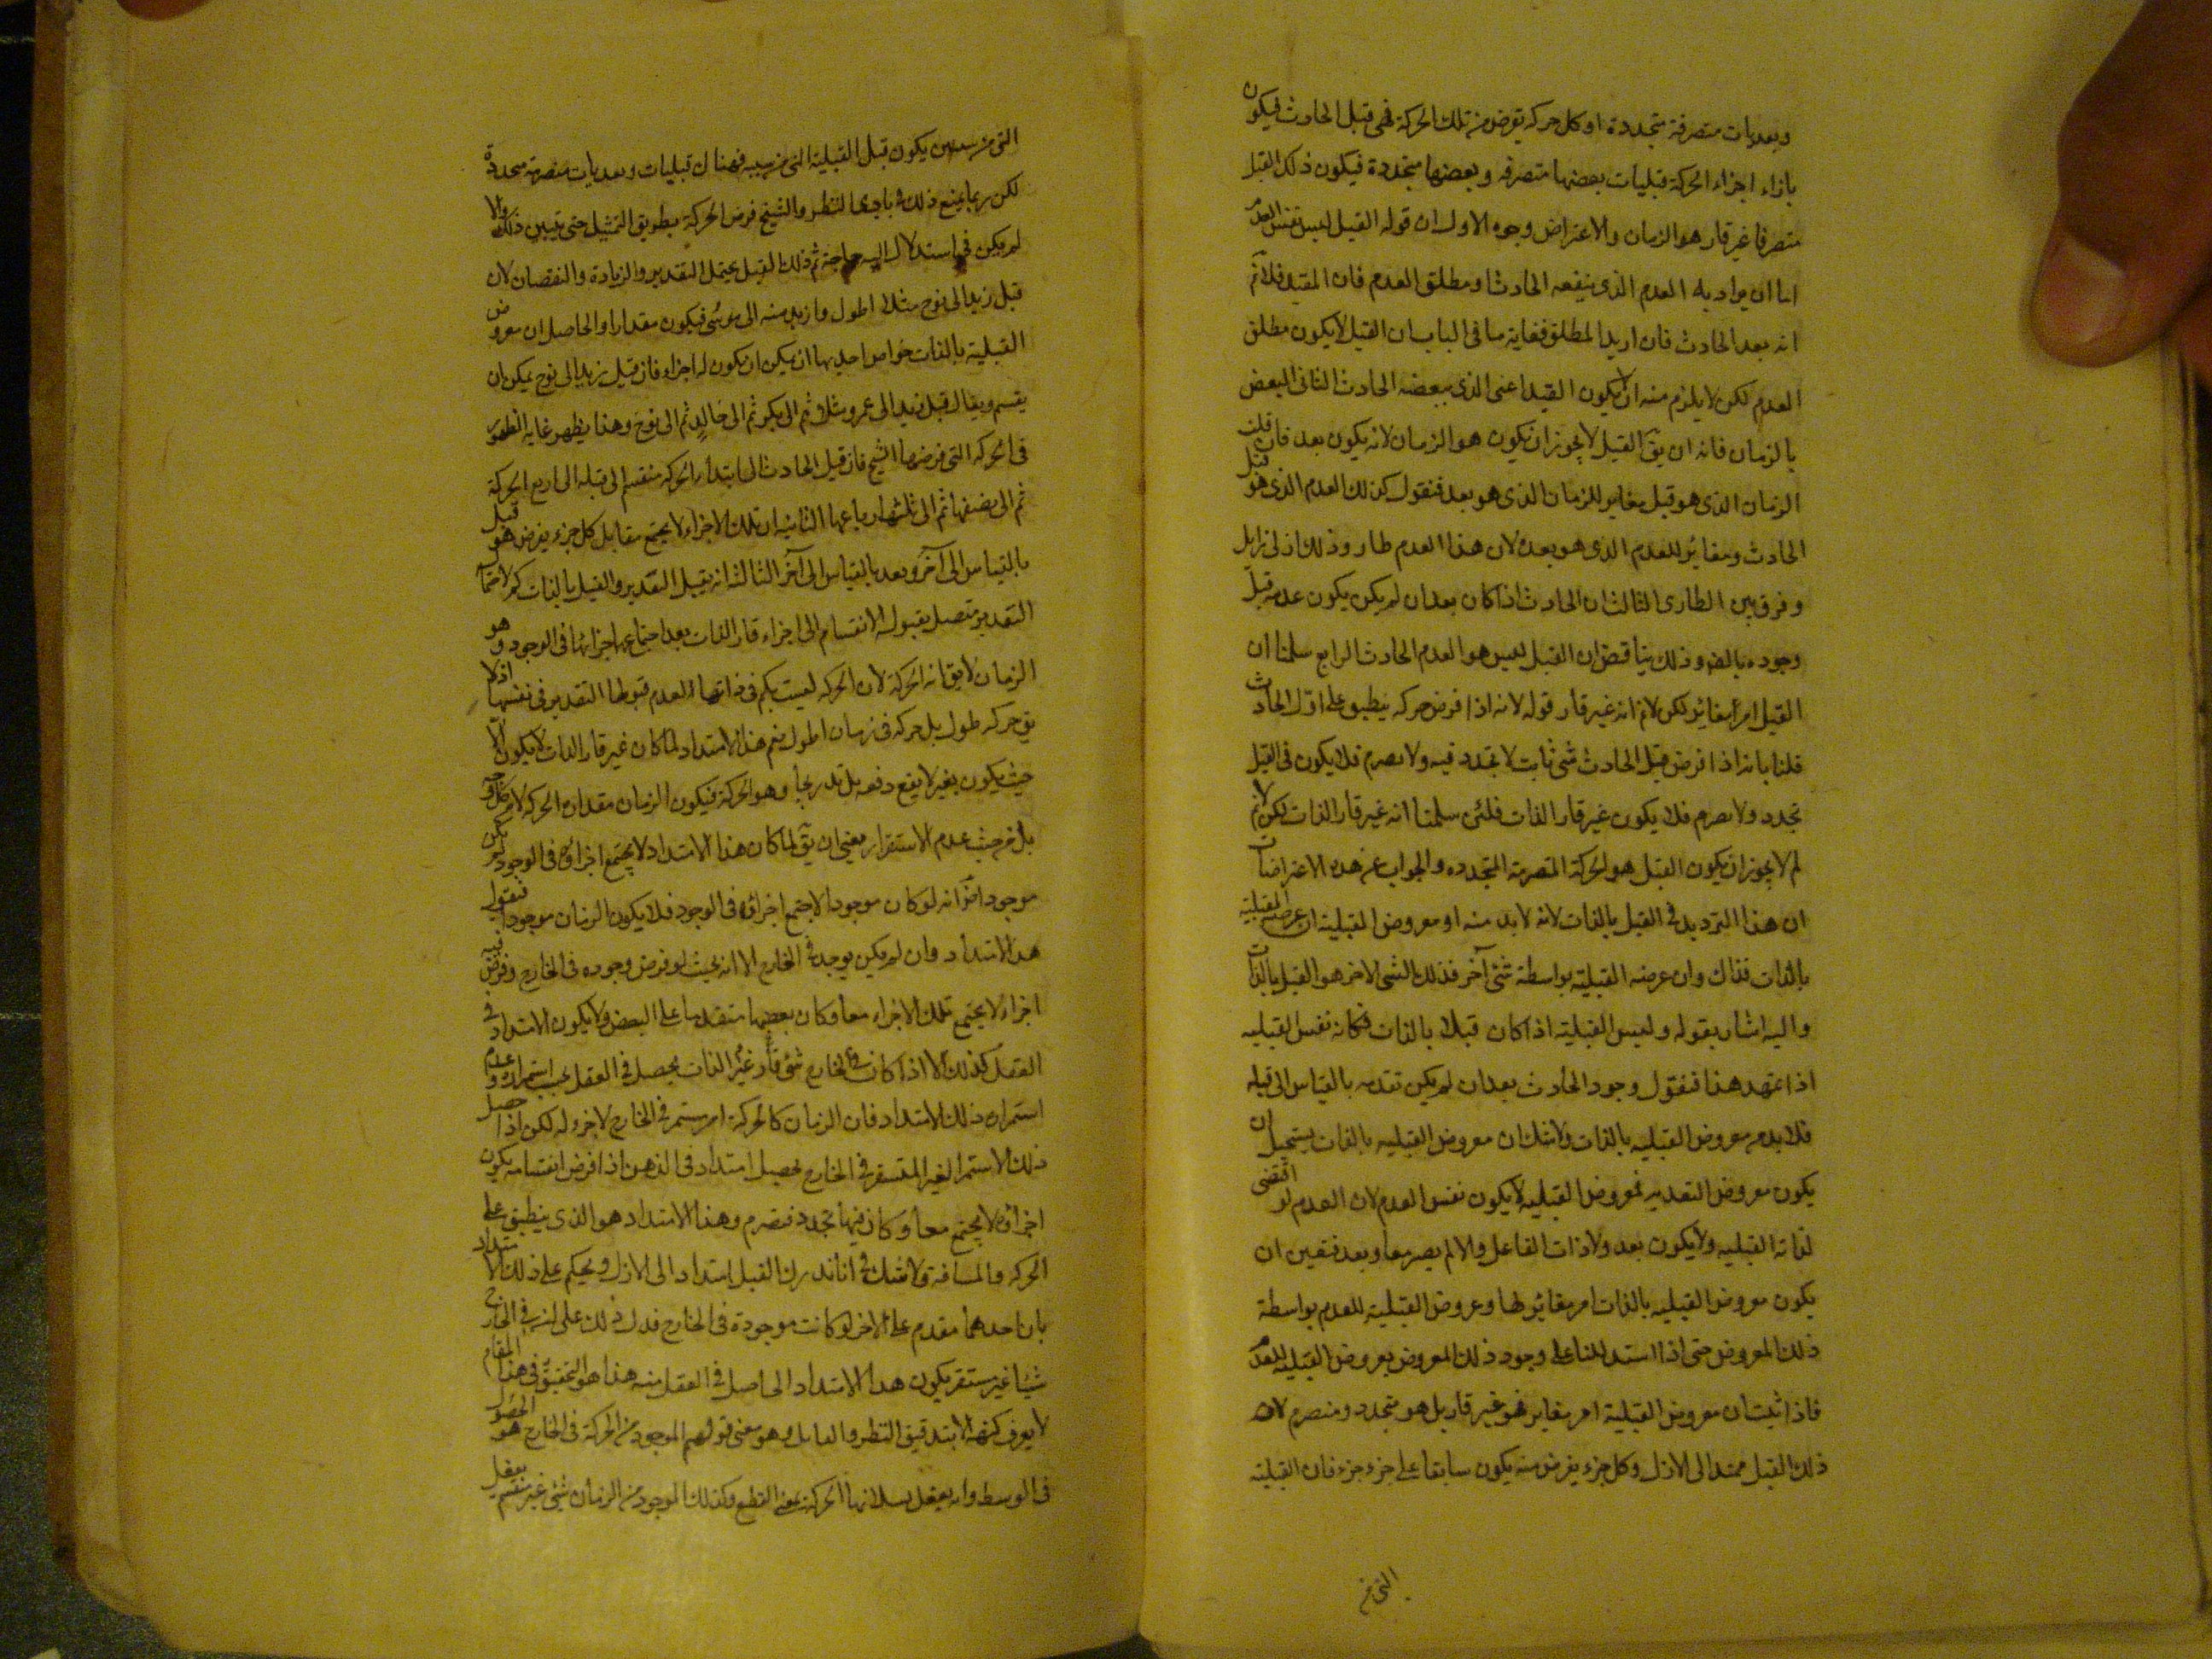 وبعديات متصرفة متجددة او كل حركة يفرض من تلك الحركة فهى قبل الحادث فيكون
بازاء اجزاء الحركة قبليات بعضها متصرفه وبعضها متجددة فيكون ذلك القبل
متصرفا غير قار هو الزمان والاعتراض وجوه الاول ان قوله القبل ليس نفس العدم
اما ان يراد به العدم الذى يتبعه الحادث او مطلق العدم فان المقيد فلا نم
انه بعد الحادث فان اريد المطلق فغاية ما فى الباب ان القبل لا يكون مطلق
العدم لكن لا يلزم منه ان لا يكون المقيد اعنى الذى الحادث الثانى البعض
بالزمان فانه ان يق القبل لا يجوز ان يكون هو الزمان لانه يكون بعد فان قلت
الزمان الذى هو قبل مغاير للزمان الذى هو بعد فنقول كذلك العدم الذى هو قبل
الحادث ومغاير للعدم الذى هو بعده لان هذا العدم طار وذلك ازلى زايل
وفرق بين الطارى الثالث ان الحادث اذا كان بعد ان لم يكن يكون عدمه قبل
وجوده بالضو وذلك يناقض ان القبل ليس هو العدم الحادث الرابع سلمنا ان
القبل امر مغاير لكن لا نم انه غير قار قوله لانه اذا فرض حركه ينطبق على اول الحادث
قلنا بانه اذا فرض قبل الحادث شى ثابت لا تجدد فيه ولا تصرم فلا يكون فى القبل
تجدد ولا تصرم فلا يكون غير قار الذات فلئن سلمنا انه غير قار الذات لكن لا نم
لم لا يجوز ان يكون القبل هو الحركة المتصرمة المتجدده والجواب عن هذه الاعتراضات
ان هذا الترديد فى القبل بالذات لانه لابد منه او معروض القبلية ان عرضه القبلية
بالذات فذاك وان عرضه القبلية بواسطة شئ آخر فذلك الشى الاخر هو القبل بالذات
واليه اشار بقوله وليس القبلية اذا كان قبلا بالذات فكانه نفس القبليه
اذا تمهد هذا فنقول وجود الحادث بعد ان لم يكن تقدمه بالقياس الى قبله
فلا بد من معروض القبليه بالذات ولا شك ان معروض القبليه بالذات يستحيل ان
يكون معروض البعديه فمعروض القبليه لا يكون نفس العدم لان العدم لو اقتضى
لذاته القبليه ولا يكون بعد ولا ذات الفاعل والا لم يصر معا وبعد فتعين ان
يكون معروض القبليه بالذات امر مغاير لها وعروض القبلية للعدم بواسطة
ذلك المعروض حتى اذا استدللنا على وجود ذلك المعروض بعروض القبليه للعدم
فاذا ثبت ان معروض القبلية امر مغاير فهو غير قار بل هو متجدد ومنصرم لان
ذلك القبل ممتد الى الازل وكل جزء يفرض منه يكون سابقا على جزء جزء فان القبلية
التى من
التى من يكون قبل القبلية التى من فهناك قبليات وبعديات متصرمة متجددة
لكن ربما يمنع ذلك فى بادى النظر والشيخ فرض الحركة بطريق التمثيل حتى يتبين ذلك والا
لم يكن فى استدلال اليه حاجة ثم ذلك القبل يحتمل التقدير والزيادة والنقصان لان
قبل زيد الى نوح مثلا اطول وازيد منه الى موسى فيكون مقدارا والحاصل ان معروض
القبلية بالذات خواص احديها ان يمكن ان يكون له اجزاء فان قبل زيد الى نوح يمكن ان
يقسم ويقال قبل زيد الى عمرو مثلا ثم الى بكر ثم الى خالد ثم الى نوح وهذا يظهر غاية الظهور
فى الحركه التى فرضها الشيخ فان قبل الحادث الى ابتداء الحركه منقسم الى قبله الى اربع الحركة
ثم الى نصفها ثم الى ثلثة ارباعها الثانية ان تلك الاجزاء لا يجتمع مقابل كل جزء يفرض هو قبل
بالقياس الى آخر وبعد بالقياس الى آخر الثالثة انه يقبل التقدير والقبل بالذات كم لاحتما
التقدير متصل بقبوله الانقسام الى اجزاء قار الذات بعد اجتماع اجزائها فى الوجود وهو
الزمان لا يق انه الحركة لان الحركه ليست بكم فى ذاتها العدم قبولها التقدير فى نفسها اذ لا
يق حركه طول بل حركه فى زمان اطول نعم هذا الامتداد لما كان غير قار الذات لا يكون الا
حيث يكون يغير لا يقع دفعه بل تدريجا وهو الحركة فيكون الزمان مقدار الحركه لا من كل وجه
بل من حيث عدم الاستقرار معنى ان يق لما كان هذا الامتداد لا يجتمع اجزاؤه فى الوجود لم يكن
موجودا فو انه لو كان موجودا لاجتمع اجزاؤه فى الوجود فلا يكون الزمان موجودا فنقول
هذا الامتداد وان لم يكن يوجد فى الخارج الا انه بحيث لو فرض وجوده فى الخارج وفرض فيه
اجزاء لا يجتمع تلك الاجزاء معا وكان بعضها متقدما على البعض ولا يكون الامتداد فى
العقل كذلك الا اذا كان فى الخارج شئ غير قار الذات يحصل فى العقل بحسب استمراره وعدم
استمراره ذلك الامتداد فان الزمان كالحركة امر مستمر فى الخارج لا جزء له لكن اذا حصل
ذلك الاستمرار الغير المستقر فى الخارج يحصل امتداد فى الذهن اذا فرض انقسامه يكون
اجزاؤه لا يجتمع معا وكان فيها تجدد فتصرم وهذا الامتداد هو الذى ينطبق على
الحركه والمسافة ولا شك فى انا ندرك القبل امتداد الى الازل ويحكم على ذلك الامتداد
بان احدهما مقدم على الاخر لو كانت موجودة فى الخارج فدل ذلك على ان فى الخارج
شيئا غير مستقر يكون هذا الامتداد الحاصل فى العقل منه هذا هو التحقيق فى هذا المقام
لا يعرف كنهه الا بتدقيق النظر والتامل وهو معنى قولهم الموجود من الحركة فى الخارج هو الحصول
فى الوسط وانه يفعل بسيلانها الحركة بمعنى القطع وكذلك الموجود من الزمان شئ غير منقسم يفعل